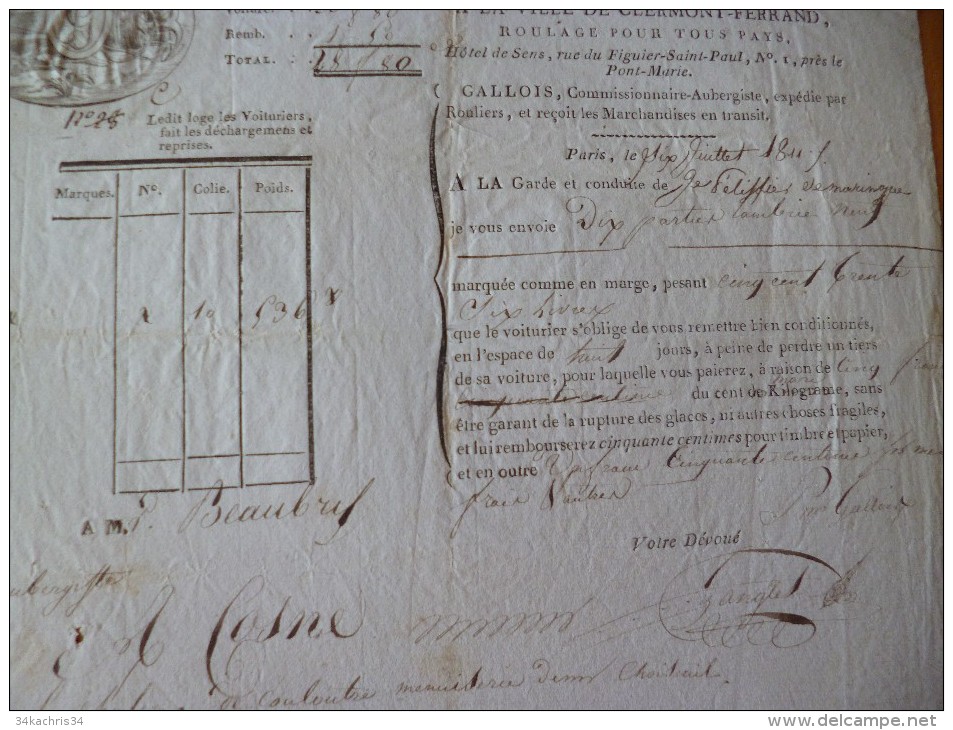 Remb.
TOTAL. 28 80
No 28
Ledit loge les Voituriers,
fait les déchargemens et
reprises.
Marques. No. Colie. Poids.
10 536
A M. P. Beaubry
A LA VILLE DE CLERMONT-FERRAND,
ROULAGE POUR TOUS PAYS.
Hôtel de Sens, rue du Figuier-Saint-Paul, No. 1, près le
Pont-Marie.
GALLOIS, Commissionnaire-Aubergiste, expédie par
Rouliers, et reçoit les Marchandises en transit.
Paris, le Six Juillet 181
A LA Garde et conduite de Pelissier de maringue
je vous envoie Dix parties neuf
marquée comme en marge, pesant cinq cent trente
Six Livres
que le voiturier s'oblige de vous remettre bien conditionnés,
en l'espace de huit jours, à peine de perdre un tiers
de sa voiture, pour laquelle vous paierez, à raison de Cinq franc
du cent de Kilograme, sans
être garant de la rupture des glaces, ni autres choses fragiles,
et lui rembourserez cinquante centimes pour timbre et papier,
et en outre un franc Cinquante centime
frais
Votre Dévoué
aubergiste
A Cosne
de couloutre menuiserie
34kachris34
www.delcampe.net